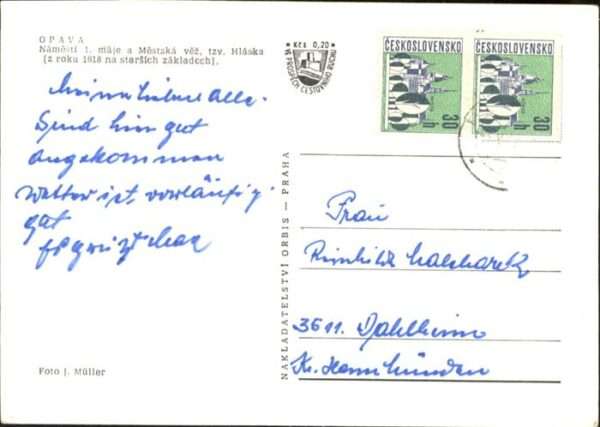 OPAVA
Náměstí 1. máje a Městská věž, tzv. Hláska
(z roku 1618 na starších základech).
Kčs 0,20
VE PROSPĚCH CESTOVNÍHO RUCHU
ČESKOSLOVENSKO
30 h
ČESKOSLOVENSKO
30 h
alle.
Sind hier gut
angekommen
Wetter ist vorläufig
gut
NAKLADATELSTVÍ ORBIS — PRAHA
Frau
3611. Dahlheim
Kr. Hann Münden
Foto J. Müller